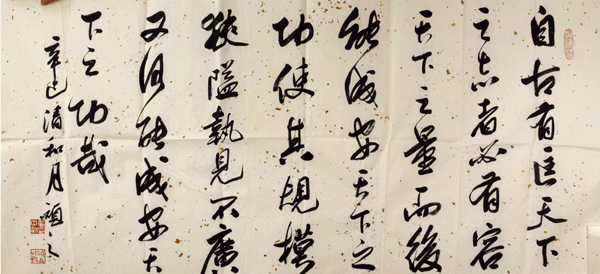 自古有匡天下
之志者必有容
天下之量而後
能成安天下之
功使其規模
狹隘執見不廣
又何能成安天
下之功哉
辛巳清和月